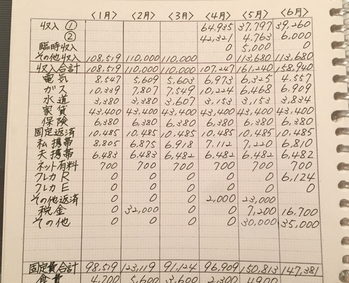 〈1月〉 〈2月〉 〈3月〉 〈4月〉 〈5月〉 〈6月〉
収入 ① 64,935 37,797 39,260
② 42,321 4,763 6,000
臨時収入 0 5,000 0
その他収入 108,519 110,000 110,000 0 113,680 113,680
収入合計 108,519 110,000 110,000 107,247 161,240 158,940
電気 8,547 5,609 5,603 6,973 6,325 4,557
ガス 10,339 7,807 7,549 10,224 6,468 6,909
水道 3,380 3,380 3,607 3,153 3,153 3,834
家賃 43,400 43,400 43,400 43,400 43,400 43,400
保険 6,380 6,380 6,380 6,380 6,380 6,380
固定返済 10,485 10,485 10,485 10,485 10,485 10,485
私携帯 8,805 6,875 6,918 7,112 6,220 6,810
夫携帯 6,483 6,483 6,482 6,482 6,482 6,482
ネット有料 700 700 700 700 700 700
クレカR 0 0 0 0 0 6,124
クレカE 0 0 0 0 0 0
その他返済 0 0 0 2,000 23,000
税金 0 32,000 0 0 7,200 16,700
その他 0 0 0 0 30,000 35,000
固定費合計 98,519 123,119 91,124 96,909 150,813 147,381
食費 4,700 5,600 3,600 2,300 4,900